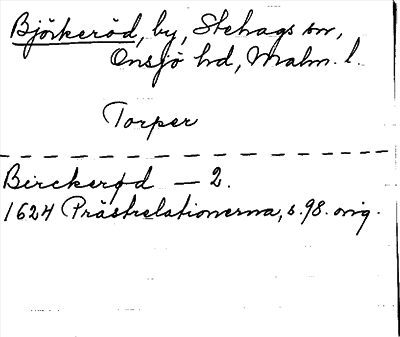 Björkeröd, by, Stehags sn,
Onsjö hd, Malm. l.
Torper
Birckerød — 2.
1624 Prästrelationerna, s. 98. orig.